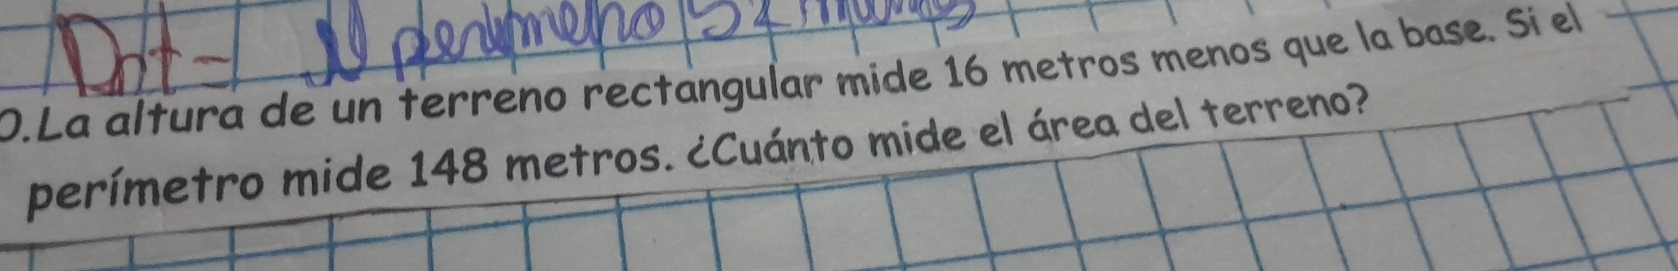 Dnt= El perímetro 52 
0.La altura de un terreno rectangular mide 16 metros menos que la base. Si el
perímetro mide 148 metros. ¿Cuánto mide el área del terreno?